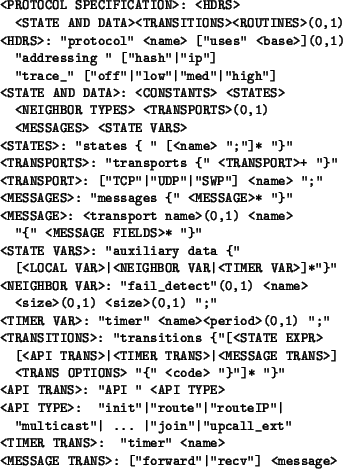 <PROTOCOL SPECIFICATION>: <HDRS>
<STATE AND DATA><TRANSITIONS><ROUTINES>(0,1)
<HDRS>: "protocol" <name> ["uses" <base>](0,1)
"addressing " ["hash"|"ip"]
"trace_" ["off"|"low"|"med"|"high"]
<STATE AND DATA>: <CONSTANTS> <STATES>
<NEIGHBOR TYPES> <TRANSPORTS>(0,1)
<MESSAGES> <STATE VARS>
<STATES>: "states { " [<name> ";"]* "}"
<TRANSPORTS>: "transports {" <TRANSPORT>+ "}"
<TRANSPORT>: ["TCP"|"UDP"|"SWP"] <name> ";"
<MESSAGES>: "messages {" <MESSAGE>* "}"
<MESSAGE>: <transport name>(0,1) <name>
"{" <MESSAGE FIELDS>* "}"
<STATE VARS>: "auxiliary data {"
[<LOCAL VAR>|<NEIGHBOR VAR|<TIMER VAR>]*"}"
<NEIGHBOR VAR>: "fail_detect"(0,1) <name>
<size>(0,1) <size>(0,1) ";"
<TIMER VAR>: "timer" <name><period>(0,1) ";"
<TRANSITIONS>: "transitions {"[<STATE EXPR>
[<API TRANS>|<TIMER TRANS>|<MESSAGE TRANS>]
<TRANS OPTIONS> "{" <code> "}"]* "}"
<API TRANS>: "API " <API TYPE>
<API TYPE>: "init"|"route"|"routeIP"|
"multicast"| ... |"join"|"upcall_ext"
<TIMER TRANS>: "timer" <name>
<MESSAGE TRANS>: ["forward"|"recv"] <message>